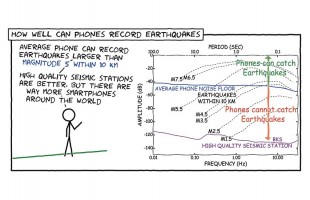 HOW WELL CAN PHONES RECORD EARTHQUAKES
AVERAGE PHONE CAN RECORD
EARTHQUAKES LARGER THAN
MAGNITUDE 5 WITHIN 10 KM
HIGH QUALITY SEISMIC STATIONS
ARE BETTER. BUT THERE ARE
WAY MORE SMARTPHONES
AROUND THE WORLD
PERIOD (SEC)
100.0 10.0 1.0 0.1
AMPLITUDE (dB)
-20
-40
-60
-80
-100
-120
-140
Phones can catch
Earthquakes
M7.5 M6.5
AVERAGE PHONE NOISE FLOOR
EARTHQUAKES
WITHIN 10 KM
M5.5
Phones cannot catch
Earthquakes
M4.5
M3.5
M2.5
M1.5
BKS
HIGH QUALITY SEISMIC STATION
0.01 0.10 1.00 10.00
FREQUENCY (Hz)